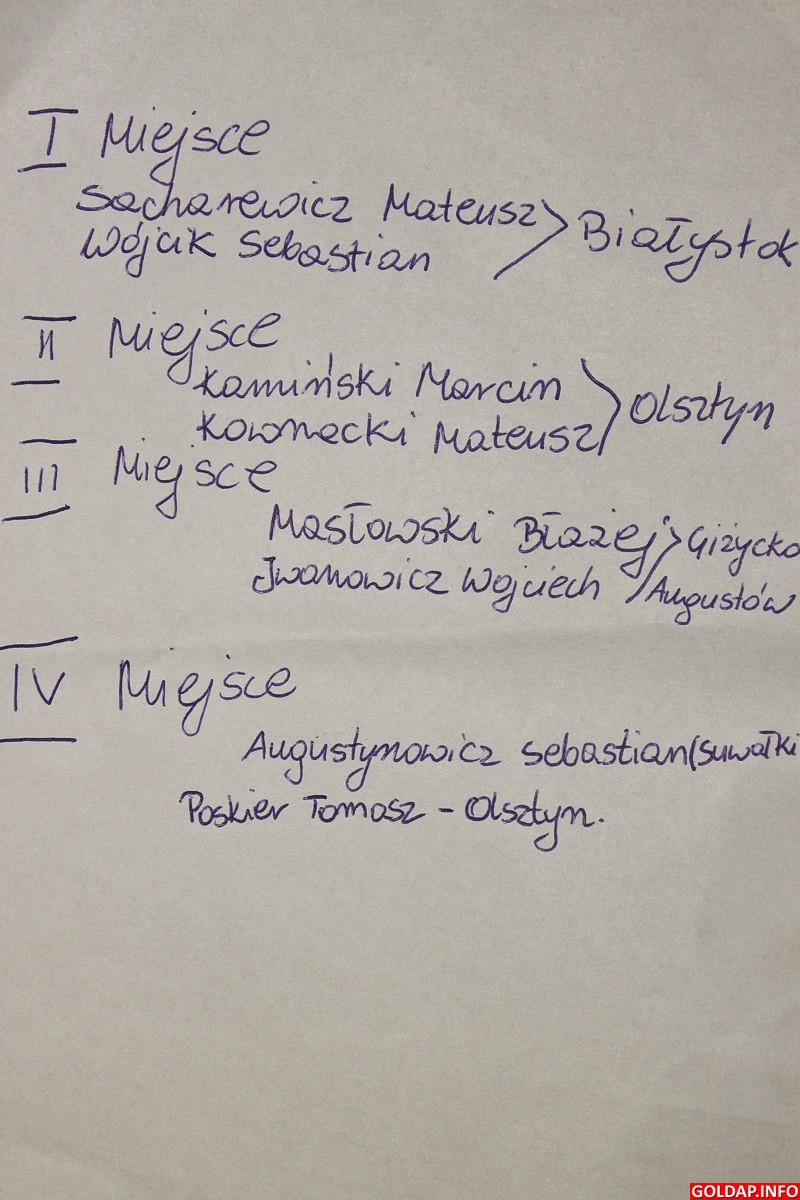 I Miejsce
Sacharewicz Mateusz > Białystok
Wójcik Sebastian
II Miejsce
Kamiński Marcin > Olsztyn
Kownacki Mateusz
III Miejsce
Masłowski Błażej > Giżycko
Iwanowicz Wojciech / Augustów
IV Miejsce
Augustynowicz Sebastian (Suwałki
Poskier Tomasz - Olsztyn.
GOLDAP.INFO